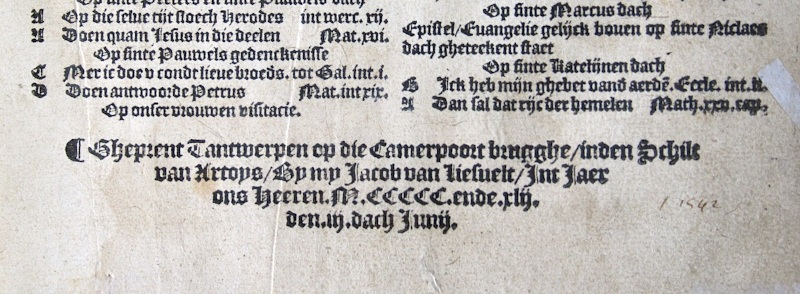 A Op die selue tijt sloech Herodes int werc. xij.
A Doen quam Jesus in die deelen Mat.xvi.
Op sinte Pauwels gedenckenisse
C Mer ic doe v condt lieue broeds. tot Gal.int.i.
D Doen antwoorde Petrus Mat.int xix.
Op onser vrouwen visitacie.
Op sinte Marcus dach
Epistel/Euangelie gelijck bouen op sinte Niclaes
dach gheteekent staet
Op sinte Katelijnen dach
B Ick heb mijn ghebet vand aerdē. Eccle. int.
A Dan sal dat rijc der hemelen Math.xxv.cap.
¶ Gheprent Tantwerpen op die Camerpoort brugghe/inden Schilt
van Artoys/By my Jacob van Liesuelt/Int Jaer
ons Heeren.M.CCCCC.ende.xlij.
den.iij.dach Junij.
1542